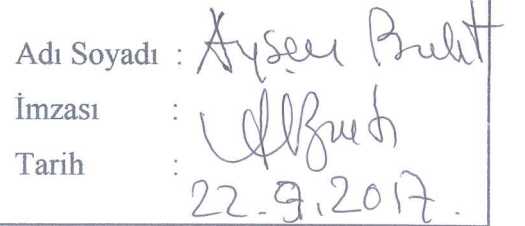 Adı Soyadı : Ayşen Bulut
İmzası :
Tarih : 22.9.2017.